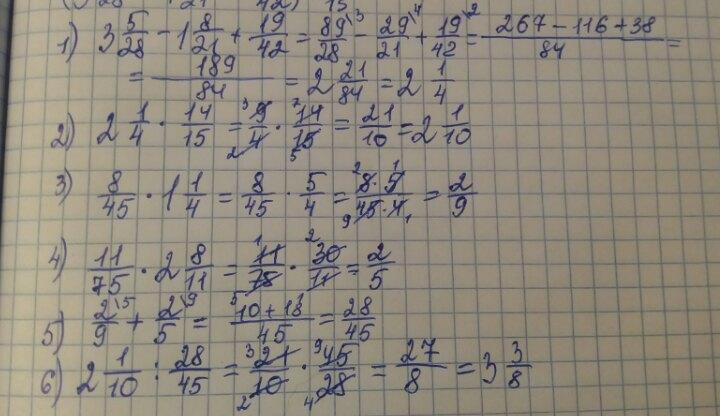 1) 3 5/28 - 1 8/21 + 19/42 = 89\3/28 - 29\4/21 + 19\2/42 = 267 - 116 + 38/84 =
= 189/84 = 2 21/84 = 2 1/4
2) 2 1/4 · 14/15 = 9/4 · 14/15 = 21/10 = 2 1/10
3) 8/45 · 1 1/4 = 8/45 · 5/4 = 8 · 5/45 · 4 = 2/9
4) 11/75 · 2 8/11 = 11/75 · 30/11 = 2/5
5) 2\5/9 + 2\9/5 = 10 + 18/45 = 28/45
6) 2 1/10 : 28/45 = 21/10 · 45/28 = 27/8 = 3 3/8